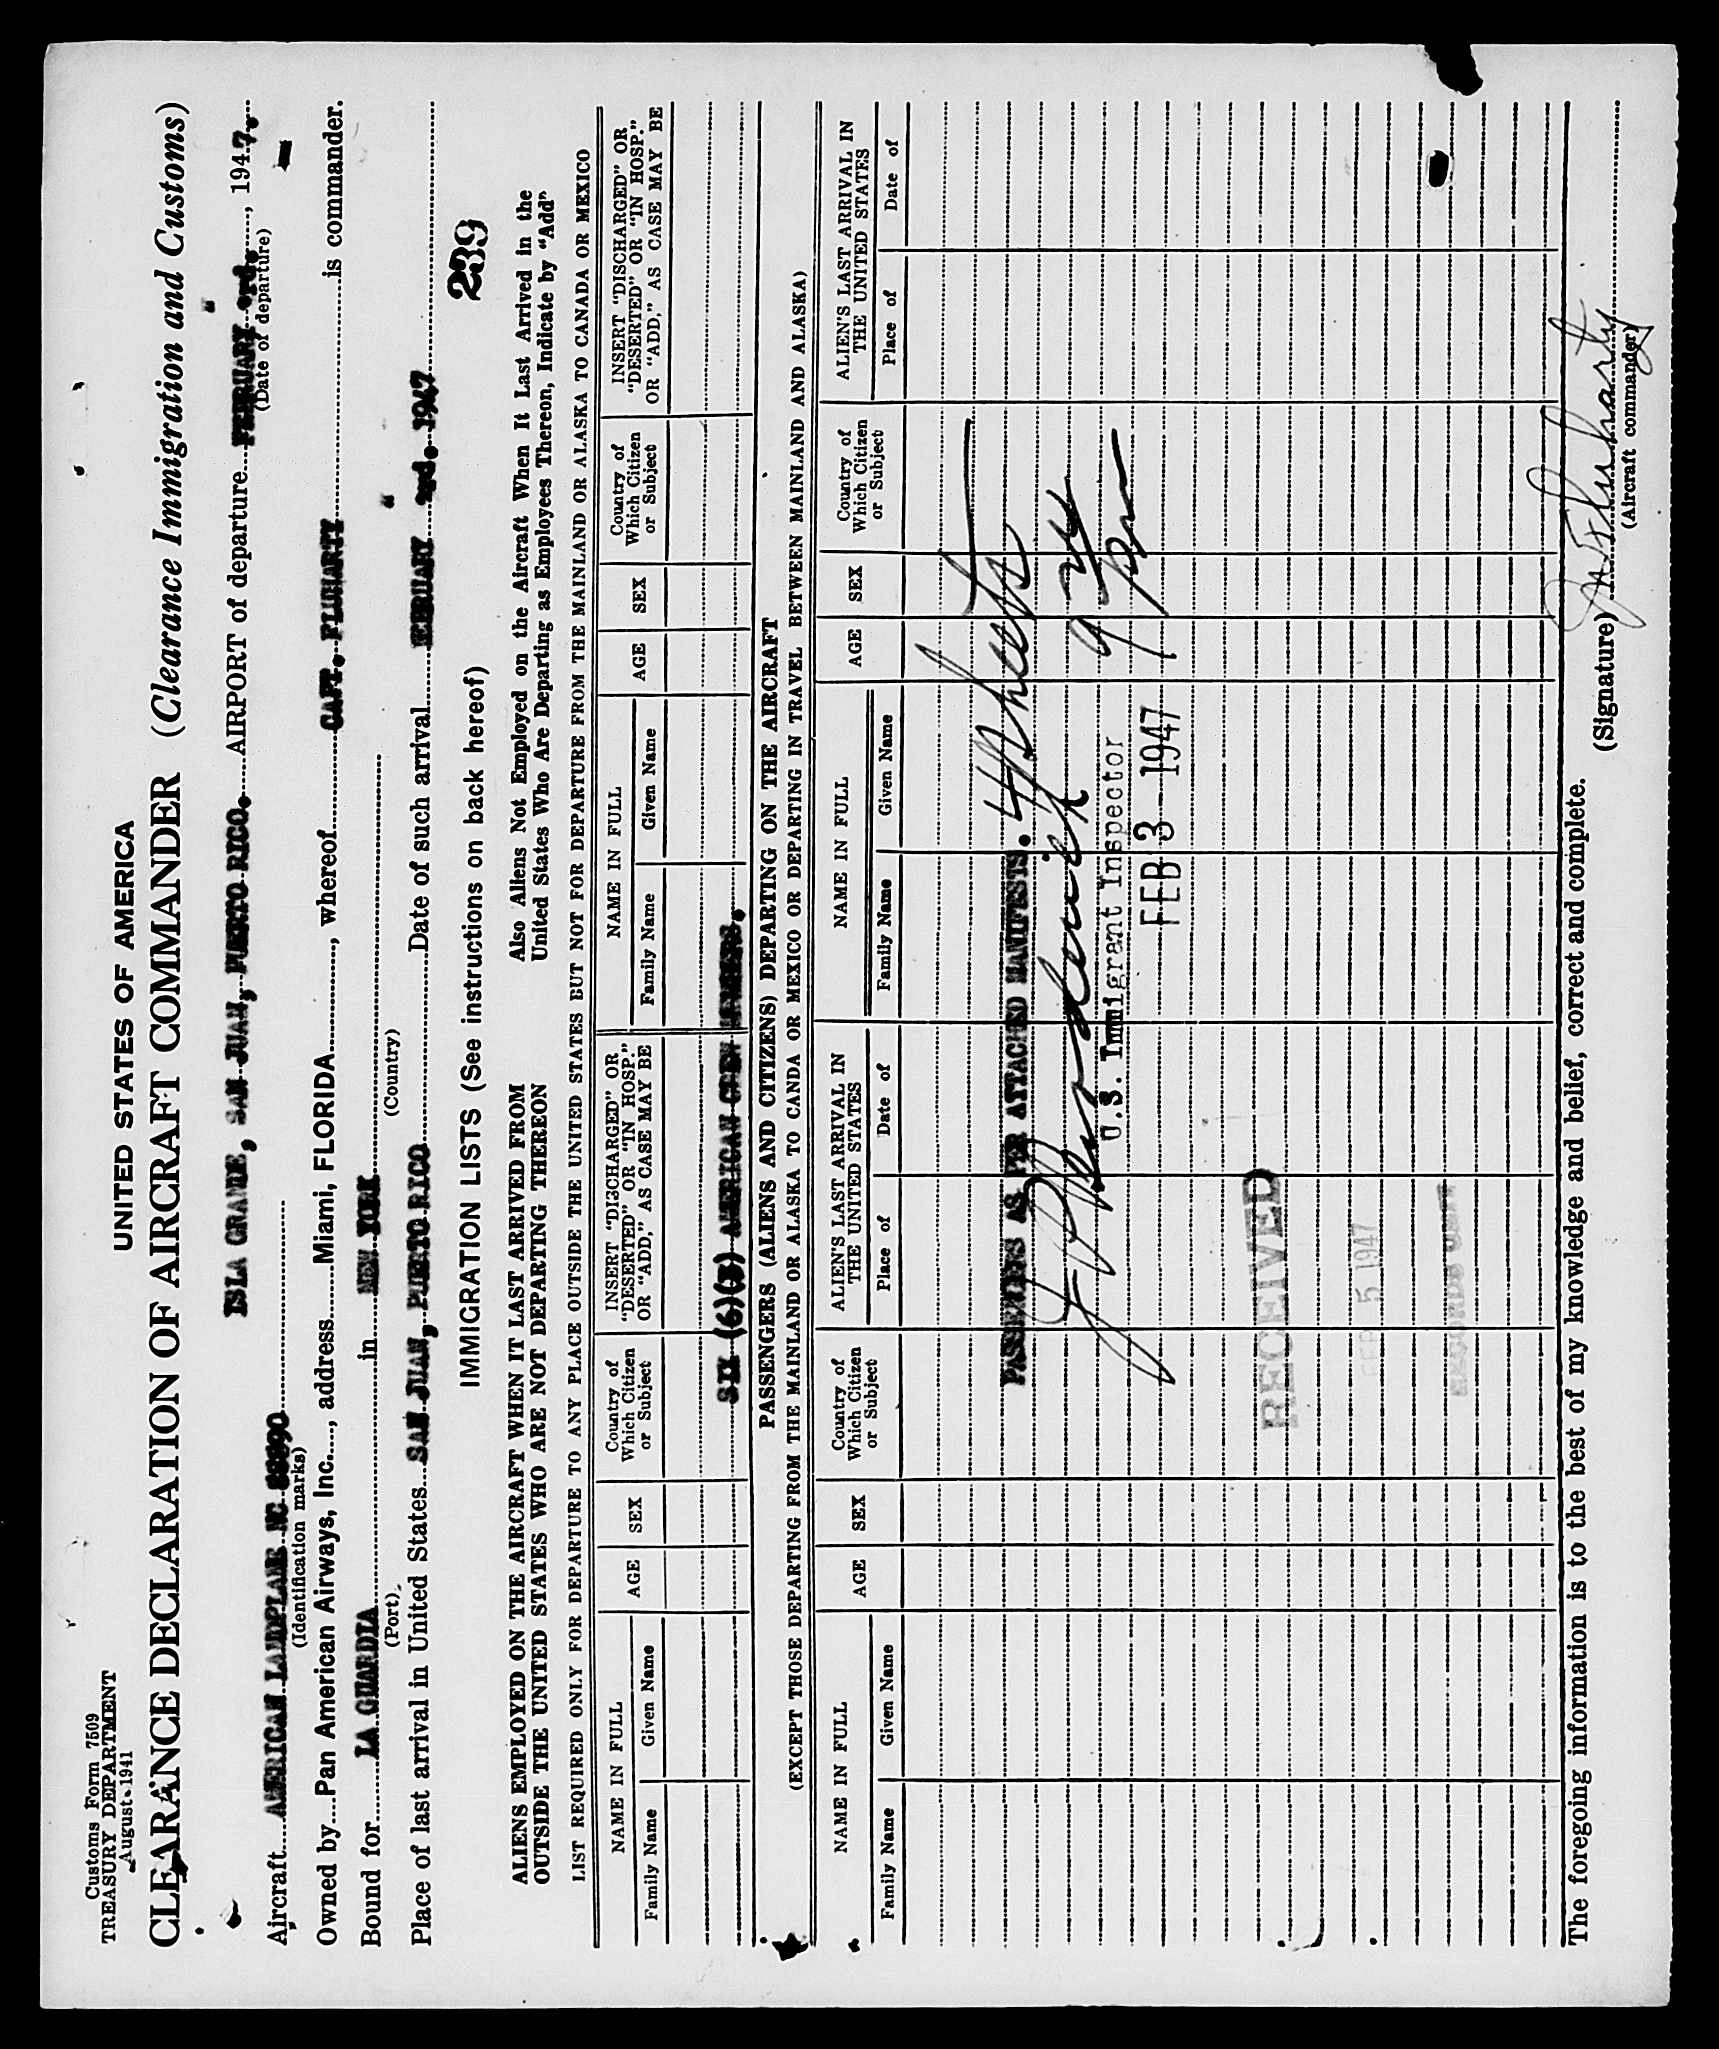 Customs Form 7509
TREASURY DEPARTMENT
August 1941
UNITED STATES OF AMERICA
CLEARANCE DECLARATION OF AIRCRAFT COMMANDER (Clearance Immigration and Customs)
ISLA GRANDE, SAN JUAN, PUERTO RICO. AIRPORT of departure FEBRUARY 3rd., 1947.
(Date of departure)
Aircraft AMERICAN LANDPLANE NC
(Identification marks)
Owned by Pan American Airways, Inc., address Miami, FLORIDA, whereof CAPT. FLUHARTY is commander.
Bound for LA GUARDIA in NEW YORK
(Port) (Country)
Place of last arrival in United States SAN JUAN, PUERTO RICO Date of such arrival EBRUARY 2nd. 1947
239
IMMIGRATION LISTS (See instructions on back hereof)
ALIENS EMPLOYED ON THE AIRCRAFT WHEN IT LAST ARRIVED FROM OUTSIDE THE UNITED STATES WHO ARE NOT DEPARTING THEREON
Also Aliens Not Employed on the Aircraft When It Last Arrived in the United States Who Are Departing as Employees Thereon, Indicate by "Add"
LIST REQUIRED ONLY FOR DEPARTURE TO ANY PLACE OUTSIDE THE UNITED STATES BUT NOT FOR DEPARTURE FROM THE MAINLAND OR ALASKA TO CANADA OR MEXICO
NAME IN FULL AGE SEX Country of Which Citizen or Subject INSERT "DISCHARGED" OR "DESERTED" OR "IN HOSP." OR "ADD," AS CASE MAY BE NAME IN FULL AGE SEX Country of Which Citizen or Subject INSERT "DISCHARGED" OR "DESERTED" OR "IN HOSP." OR "ADD," AS CASE MAY BE
Family Name Given Name Family Name Given Name
SIX (6) AMERICAN CREW MEMBERS.
PASSENGERS (ALIENS AND CITIZENS) DEPARTING ON THE AIRCRAFT
(EXCEPT THOSE DEPARTING FROM THE MAINLAND OR ALASKA TO CANDA OR MEXICO OR DEPARTING IN TRAVEL BETWEEN MAINLAND AND ALASKA)
NAME IN FULL AGE SEX Country of Which Citizen or Subject ALIEN'S LAST ARRIVAL IN THE UNITED STATES NAME IN FULL AGE SEX Country of Which Citizen or Subject ALIEN'S LAST ARRIVAL IN THE UNITED STATES
Family Name Given Name Place of Date of Family Name Given Name Place of Date of
PASSENGERS AS PER ATTACHED MANIFESTS. 4 sheets
U.S. Immigrant Inspector
FEB 3 - 1947
RECEIVED
FEB 5 1947
The foregoing information is to the best of my knowledge and belief, correct and complete.
(Signature)
(Aircraft commander)